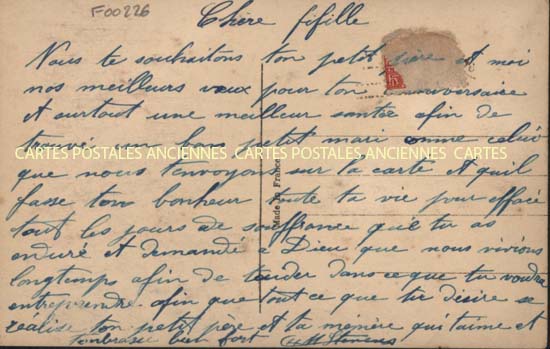 F00226
Chère fifille
Nous te souhaitons ton petit père et moi
nos meilleurs vœux pour ton anniversaire
et surtout une meilleur santée afin de
un bon petit mari comme celui
CARTES POSTALES ANCIENNES CARTES POSTALES ANCIENNES CARTES
que nous t'envoyons sur la carte et qu'il
fasse ton bonheur toute ta vie pour effacé
tout les jours de souffrance que tu as
enduré et demandé a Dieu que nous vivions
longtemps afin de t'aider dans ce que tu voudra
entreprendre. afin que tout ce que tu désire se
réalise ton petit père et ta mémère qui t'aime et
t'embrasse bien fort
Made in France